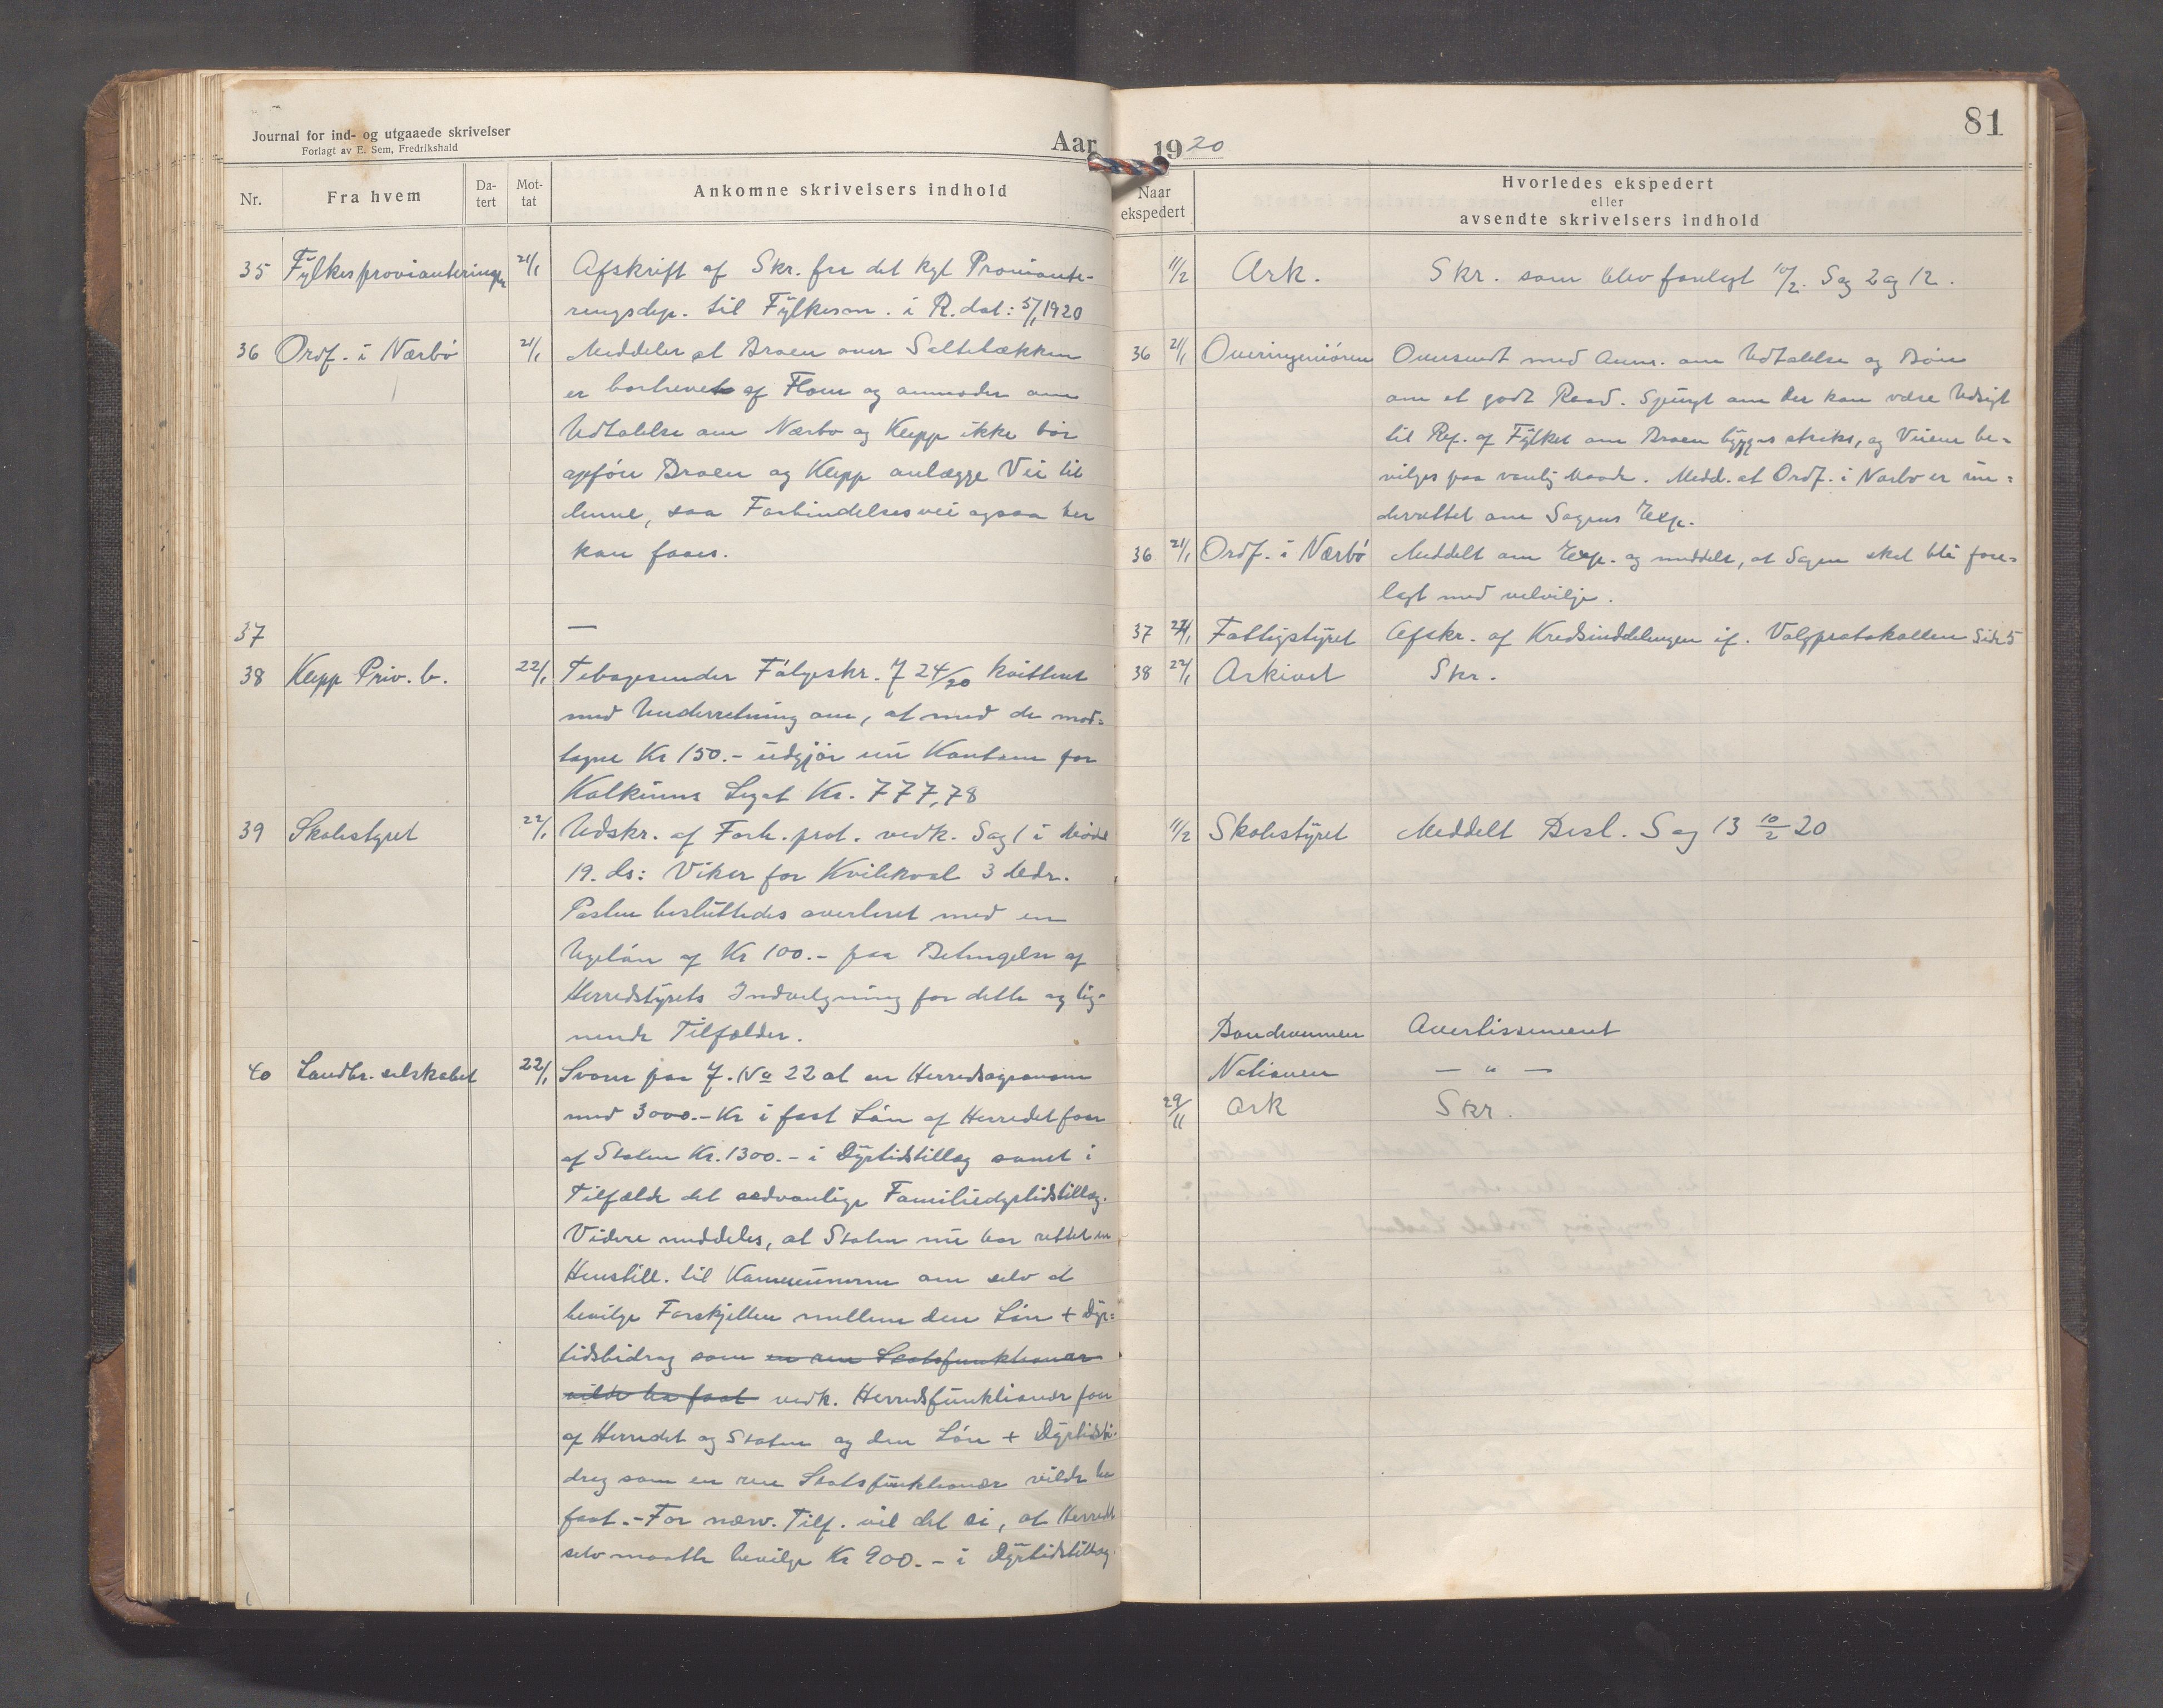 Journal for ind- og utgaaede skrivelser
Forlagt av E. Sem, Fredrikshald
Aar
Nr.
Fra hvem
Da-
tert
Mot-
tat
Ankomne skrivelsers indhold
35 Fylkesprovianteringen 21/1 Afskrift af Skr. fra det kgl Proviante-
ringsdep. til Fylkesm. i R. dat: 5/1 1920
36 Ordf. i Nærbö 21/1 Meddeler at Broen over Saltebækken
er bortrevet af Flom og anmoder om
Udtalelse om Nærbo og Klepp ikke bör
opföre Broen og Klepp anlægge Vei til
denne, saa Forbindelsesvei ogsaa her
kan faaes.
37 —
38 Klepp Priv. b. 22/1 Tebagesender Fölgeskr. J 24/20 kvitteret
med Underretning om, at med de mod-
tagne Kr 150.- udgjör nu Kontoen for
Legat Kr. 777,78
39 Skolestyret 22/1 Udskr. af Forh. prot. vedk. Sag 1 i Möde
19. ds: Vikar for Kvilekval 3 Mdr.
Posten besluttedes averteret med en
Ugelön af Kr 100.- paa Betingelse af
Herredstyrets Indvilgning for dette og lig-
nende Tilfælder.
40 Landbr. selskabet 22/1 Svarer paa J. No 22 at en Herredsagronom
med 3000.- Kr i fast Lön af Herredet faar
af Staten Kr. 1300.- i Dyrtidstillæg samt i
Tilfælde det sedvanlige Familiedyrtidstillæg.
Videre meddeles, at Staten nu har rettet en
Henstill. til Kommunerne om selv at
bevilge Forskjellen mellem den Lön + Dyr-
tidsbidrag som en ren Statsfunktionær
vilde ha faat vedk. Herredsfunktionær faar
af Herredet og Staten og den Lön + Dyrtidsbi-
drag som en ren Statsfunktionær vilde ha
faat.- For nærv. Tilf. vil det si, at Herredet
selv maatte bevilge Kr 900.- i Dyrtidstillæg.
1920
81
Naar
ekspedert
Hvorledes ekspedert
eller
avsendte skrivelsers indhold
11/2 Ark. Skr. som blev forelagt 10/2. Sag 2 og 12.
36 21/1 Overingeniören Oversendt med Anm. om Udtalelse og Bön
om et godt Raad. Spurgt om der kan være Udsigt
til Ref. af Fylket om Broen bygges straks, og Veiene be-
vilges paa vanlig Maade. Medd. at Ordf. i Nærbo er un-
derrettet om Sagens Exp.
36 21/1 Ordf. i Nærbö Meddelt om Exp. og meddelt, at Sagen skal bli fore-
lagt med velvilje.
37 22/1 Fattigstyret Afskr. af Kredsinddelingen if. Valgprotokollen Side 5
38 22/1 Arkivet Skr.
11/2 Skolestyret Meddelt Besl. Sag 13 10/2 20
Bondevennen Avertissement
Nationen — " —
29/11 Ark Skr.